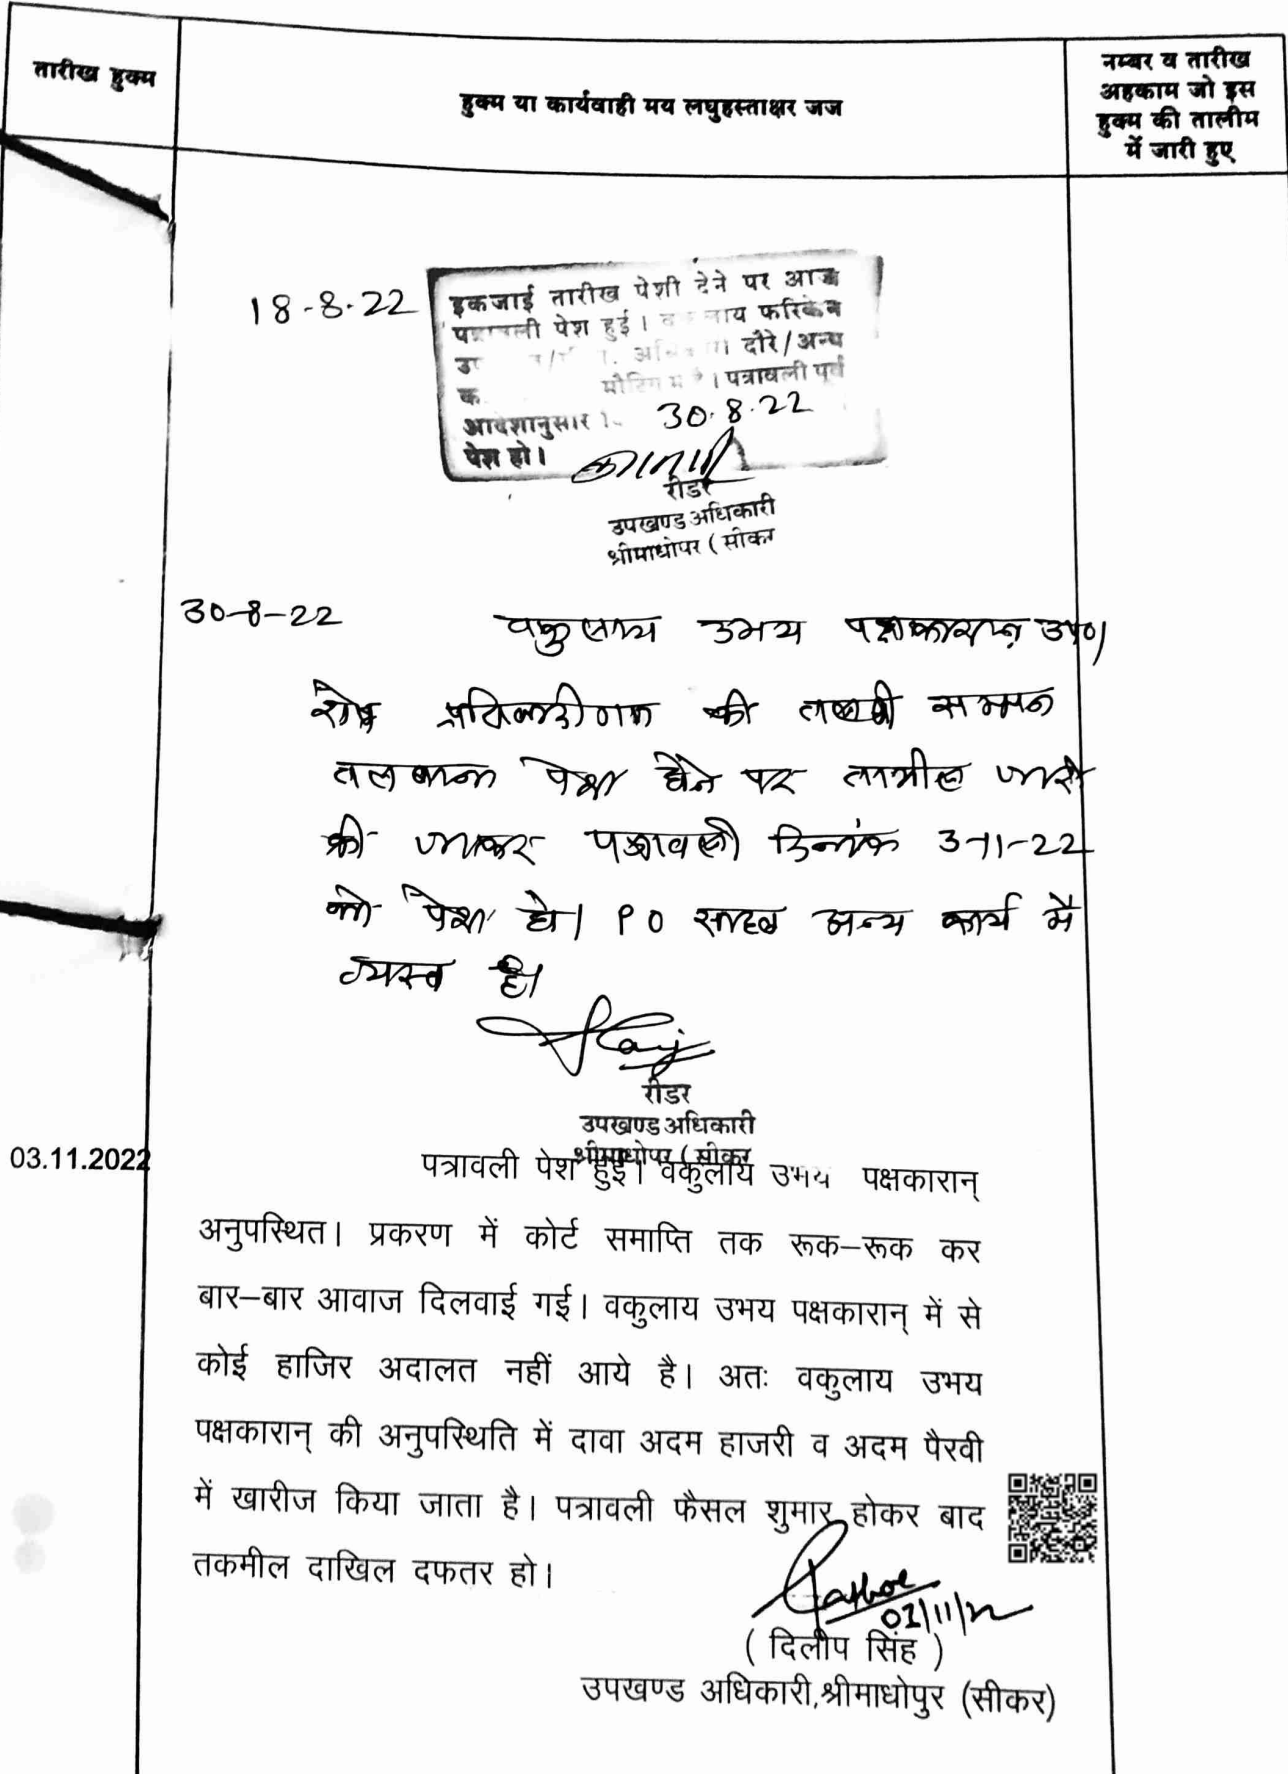 तारीख हुक्म
हुक्म या कार्यवाही मय लघुहस्ताक्षर जज
नम्बर व तारीख
अहकाम जो इस
हुक्म की तालीम
में जारी हुए
18-8-22
इकजाई तारीख पेशी देने पर आज
पत्रावली पेश हुई। फरिकेन
दौरे/अन्य
पत्रावली पूर्व
आदेशानुसार 30.8.22
पेश हो।
रीडर
उपखण्ड अधिकारी
श्रीमाधोपुर (सीकर
30-8-22
वकुलाय उभय पक्षकारान उप०।
शेष प्रतिवादीगण की तलबी सम्मन
तलबाना पेश होने पर तामील जारी
की जाकर पत्रावली दिनांक 3-11-22
को पेश हो। P O साहब अन्य कार्य मे
व्यस्त है।
रीडर
उपखण्ड अधिकारी
श्रीमाधोपुर (सीकर
03.11.2022
पत्रावली पेश हुई। वकुलाय उभय पक्षकारान्
अनुपस्थित। प्रकरण में कोर्ट समाप्ति तक रूक–रूक कर
बार–बार आवाज दिलवाई गई। वकुलाय उभय पक्षकारान् में से
कोई हाजिर अदालत नहीं आये है। अतः वकुलाय उभय
पक्षकारान् की अनुपस्थिति में दावा अदम हाजरी व अदम पैरवी
में खारीज किया जाता है। पत्रावली फैसल शुमार होकर बाद
तकमील दाखिल दफतर हो।
( दिलीप सिंह )
उपखण्ड अधिकारी,श्रीमाधोपुर (सीकर)